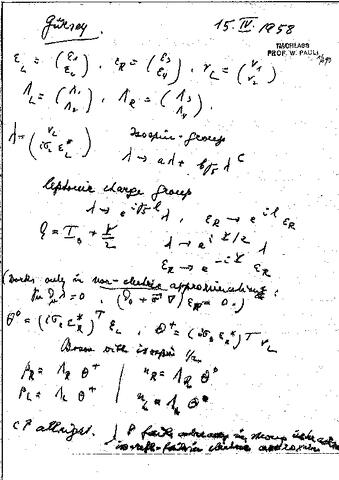 Gürsey. 15. IV. 1958
NACHLASS
PROF. W. PAULI
ε_L = (ε_1 ε_2), ε_R = (ε_3 ε_4), ν_L = (ν_1 ν_2)
Λ_L = (Λ_1 Λ_2), Λ_R = (Λ_3 Λ_4).
λ = (ν_L iσ_2 ε_L^*) Isospin-group
λ → aλ + bγ_5 λ^C
leptonic charge group
λ → e^{iγ_5 l} λ, ε_R → e^{il} ε_R
Q = I_3 + Y/2 λ → e^{iY/2} λ
ε_R → e^{-iY} ε_R
(Works only in non-electric approximation:
λ = 0, ) ε_R = 0.)
Θ^0 = (iσ_2 ε_R^*)^T ε_L, Θ^+ = (iσ_2 ε_R^*)^T ν_L
Boson with isospin 1/2
p_R = Λ_R Θ^+ | n_R = Λ_R Θ^0
p_L = Λ_L Θ^+ | n_L = Λ_L Θ^0
CP allright. P in strong
in electric